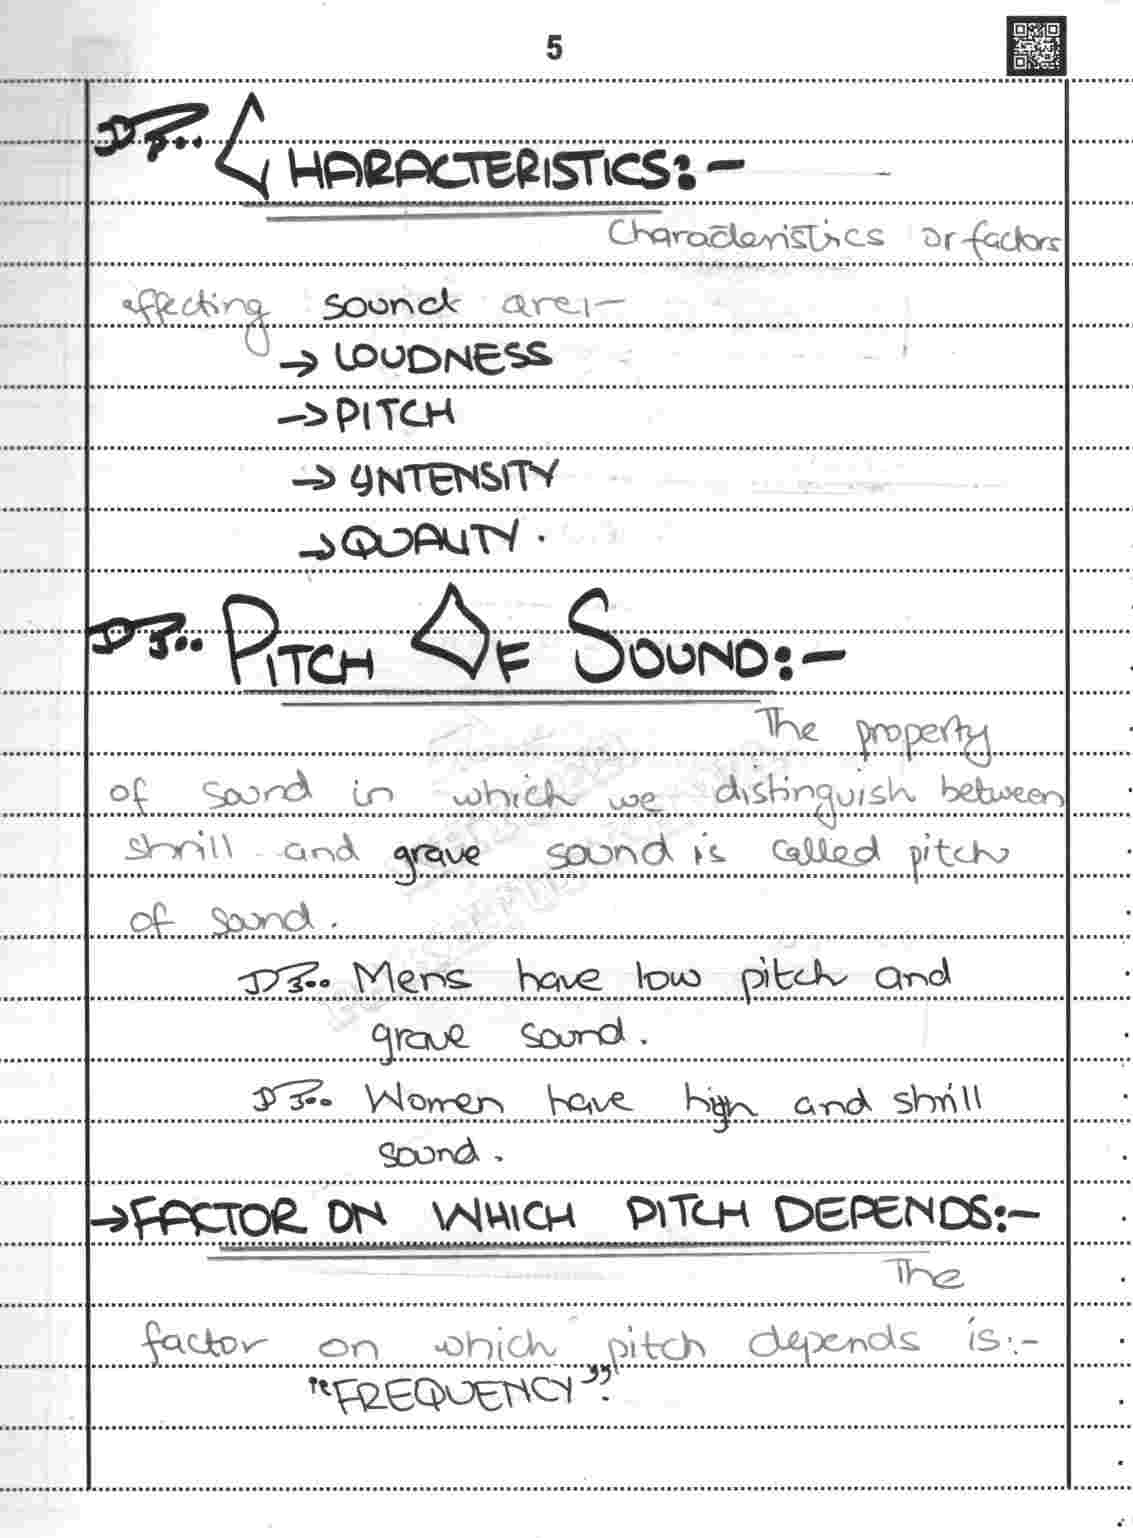 5
CHARACTERISTICS:-
Characteristics or factors
affecting sound are:-
→ LOUDNESS
→ PITCH
→ INTENSITY
→ QUALITY.
PITCH OF SOUND:-
The property
of sound in which we distinguish between
shrill and grave sound is called pitch
of sound.
Mens have low pitch and
grave sound.
Women have high and shrill
sound.
→ FACTOR ON WHICH PITCH DEPENDS:-
The
factor on which pitch depends is:-
"FREQUENCY".